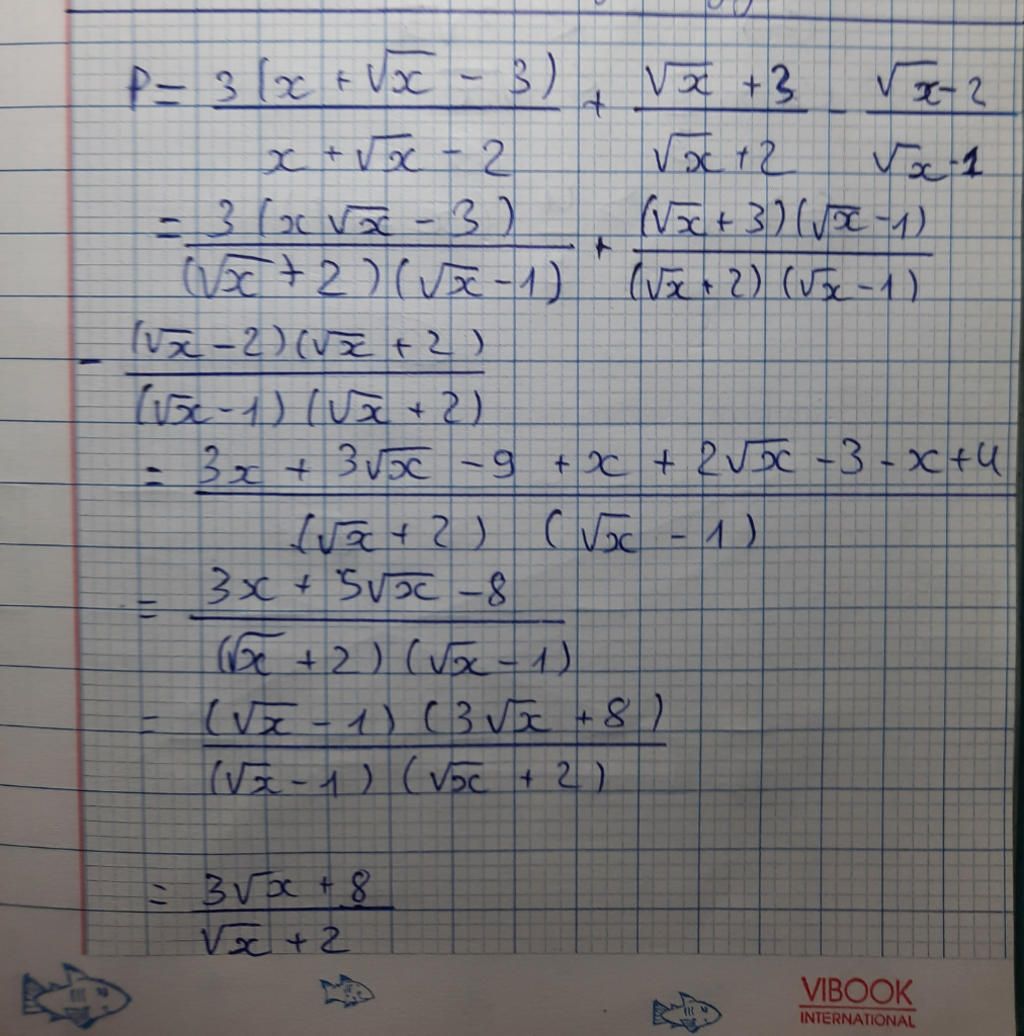 P = 3(x + √x - 3) / x + √x - 2 + √x + 3 / √x + 2 - √x - 2 / √x - 1
= 3(x √x - 3) / (√x + 2)(√x - 1) + (√x + 3)(√x - 1) / (√x + 2)(√x - 1)
- (√x - 2)(√x + 2) / (√x - 1)(√x + 2)
= 3x + 3√x - 9 + x + 2√x - 3 - x + 4 / (√x + 2) (√x - 1)
= 3x + 5√x - 8 / (√x + 2)(√x - 1)
= (√x - 1)(3√x + 8) / (√x - 1)(√x + 2)
= 3√x + 8 / √x + 2
VIBOOK
INTERNATIONAL